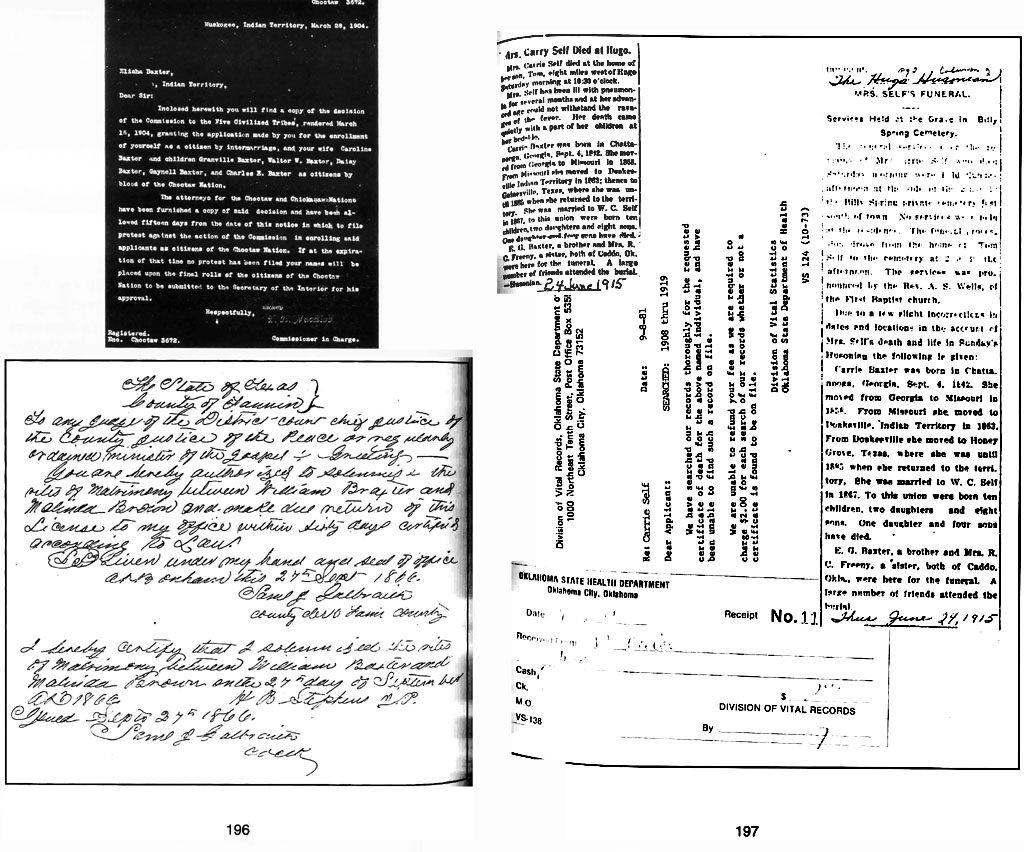 Choctaw 3672.
Muskogee, Indian Territory, March 28, 1904.
Elisha Baxter,
, Indian Territory,
Dear Sir:
Inclosed herewith you will find a copy of the decision
of the Commission to the Five Civilized Tribes, rendered March
16, 1904, granting the application made by you for the enrollment
of yourself as a citizen by intermarriage, and your wife Caroline
Baxter and children Granville Baxter, Walter W. Baxter, Daisy
Baxter, Gaynell Baxter, and Charles E. Baxter as citizens by
blood of the Choctaw Nation.
The attorneys for the Choctaw and Chickasaw Nations
have been furnished a copy of said decision and have been al-
lowed fifteen days from the date of this notice in which to file
protest against the action of the Commission in enrolling said
applicants as citizens of the Choctaw Nation. If at the expira-
tion of that time no protest has been filed your names will be
placed upon the final rolls of the citizens of the Choctaw
Nation to be submitted to the Secretary of the Interior for his
approval.
Respectfully,
Registered.
Enc. Choctaw 3672.
Commissioner in Charge.
The State of Texas }
County of Fannin }
To any judge of the District court chief justice of
the County justice of the Peace or regularly
ordained minister of the Gospel : Greeting
You are hereby authorized to solemnize the
rites of Matrimony between William Braxter and
Malinda Brown and make due return of this
License to my office within sixty days certified
according to Law
Given under my hand and seal of office
at Bonham this 27th Sept 1866.
Saml J Galbraith
county clerk Fann county
I hereby certify that I solemnized the rites
of Matrimony between William Baxter and
Malinda Brown on the 27th day of September
AD 1866 W B Stephens J.P.
Issued Septo 27th 1866.
Saml J Galbraith
Clerk
196
Mrs. Carry Self Died at Hugo.
Mrs. Carrie Self died at the home of
her son, Tom, eight miles west of Hugo
Saturday morning at 10:30 o'clock.
Mrs. Self has been ill with pneumon-
ia for several months and at her advan-
ced age could not withstand the rava-
ges of the fever. Her death came
quietly with a part of her children at
her bedside.
Carrie Baxter was born in Chatta-
nooga, Georgia, Sept. 4, 1842. She mov-
ed from Georgia to Missouri in 1858.
From Missouri she moved to Doakes-
ville Indian Territory in 1863; thence to
Gainesville, Texas, where she was un-
til 1885 when she returned to the terri-
tory. She was married to W. C. Self
in 1867, to this union were born ten
children, two daughters and eight sons.
One daughter and four sons have died.
E. G. Baxter, a brother and Mrs. R.
C. Freeny, a sister, both of Caddo, Ok.
were here for the funeral. A large
number of friends attended the burial.
—Husonian. 24 June 1915
Division of Vital Records, Oklahoma State Department of
1000 Northeast Tenth Street, Post Office Box 535
Oklahoma City, Oklahoma 73152
Re: Carrie Self Date: 9-8-81
Dear Applicant: SEARCHED: 1908 thru 1919
We have searched our records thoroughly for the requested
certificate of death for the above named individual, and have
been unable to find such a record on file.
We are unable to refund your fee as we are required to
charge $2.00 for each search of our records whether or not a
certificate is found to be on file.
Division of Vital Statistics
Oklahoma State Department of Health
VS 124 (10-73)
OKLAHOMA STATE HEALTH DEPARTMENT
Oklahoma City, Oklahoma
Date
Receipt No. 11
Received from
Cash
Ck.
M O
$
DIVISION OF VITAL RECORDS
VS-138
By
pg 2 Column 2
The Hugo Husonian
MRS. SELF'S FUNERAL.
Services Held at the Grave in Billy
Spring Cemetery.
The funeral services over the re-
mains of Mrs. Carrie Self who died
Saturday morning were held Sunday
afternoon at the side of the grave in
the Bills Spring private cemetery just
south of town. No services were held
at the residence. The funeral proces-
sion drove from the home of Tom
Self to the cemetery at 2 in the
afternoon. The services was pro-
nounced by the Rev. A. S. Wells, of
the First Baptist church.
Due to a few slight incorrections in
dates and locations in the account of
Mrs. Self's death and life in Sunday's
Husonian the following is given:
Carrie Baxter was born in Chatta-
nooga, Georgia, Sept. 4, 1842. She
moved from Georgia to Missouri in
1858. From Missouri she moved to
Doaksville, Indian Territory in 1863.
From Doakesville she moved to Honey
Grove, Texas, where she was until
1885 when she returned to the terri-
tory. She was married to W. C. Self
in 1867. To this union were born ten
children, two daughters and eight
sons. One daughter and four sons
have died.
E. G. Baxter, a brother and Mrs. R.
C. Freeny, a sister, both of Caddo,
Okla., were here for the funeral. A
large number of friends attended the
burial.
Thur June 24, 1915
197